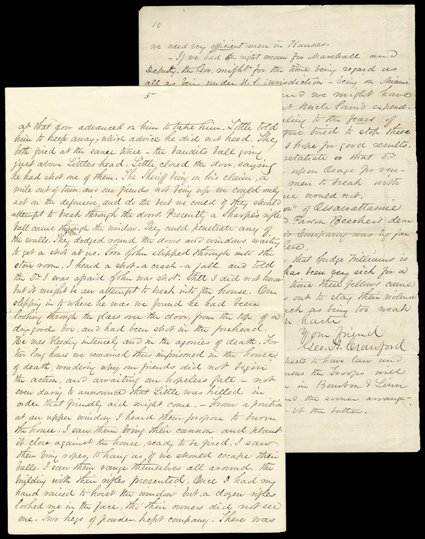 10
we need very efficient men in Kansas.
If we had the right men for Marshall and
Deputy, the Gov. might for the time being regard us
all as being under U.S. jurisdiction - being on Miami
we might have
at Uncle Sam's expense
to the fears of
tried to stop these
I hope for good results.
retaliate or that
upon Osage for
men to break with
we would not,
of Ossawattamie
dear
Company was by far
That Judge Williams is
has been very sick for a
time these fellows came
out to stay their violence
such as being too weak
in haste
Your friend
Geo. A. Crawford
to have law and
the troops will
in Bourbon & Linn
and the sooner arrange-
it the better.
5
at that door advanced on him to take them. Little told
him to keep away, which advice he did not heed. They
both fired at the same time - the bandits ball going
just above Littles head. Little closed the door, saying
he had shot one of them. The Sheriff being on his claim, a
mile out of town and our friends not being up we could only
act on the defensive and do the best we could if they should
attempt to break through the doors. Presently, a sharpes rifle
ball came through the window. They could penetrate any of
the walls. They dodged round the doors and windows waiting
to get a shot at us. Soon John slipped through into the
store room. I heard a shot - a crash - a fall and told
the I was afraid John was shot. Still I did not know
but it might be an attempt to break into the house. On
slipping in to where he was we found he had been
looking through the glass over the door, from the top of a
dry goods box, and had been shot in the forehead.
He was bleeding intensely and in the agonies of death. For
two long hours we remained thus imprisoned in the house
of death, wondering why our friends did not begin
the action, and awaiting our hopeless fate - not
even daring to announce that Little was killed in
order that friendly aid might come. - From a position
at an upper window I heard them propose to burn
the house. I saw them bring their cannon and plant
it close against the house, ready to be fired. I saw
them bring ropes to hang us if we should escape their
balls. I saw them range themselves all around the
building with their rifles presented. Once I had my
hand raised to hoist the window but a dozen rifles
looked me in the face, tho their owners did not see
me. Two kegs of powder kept company. There was